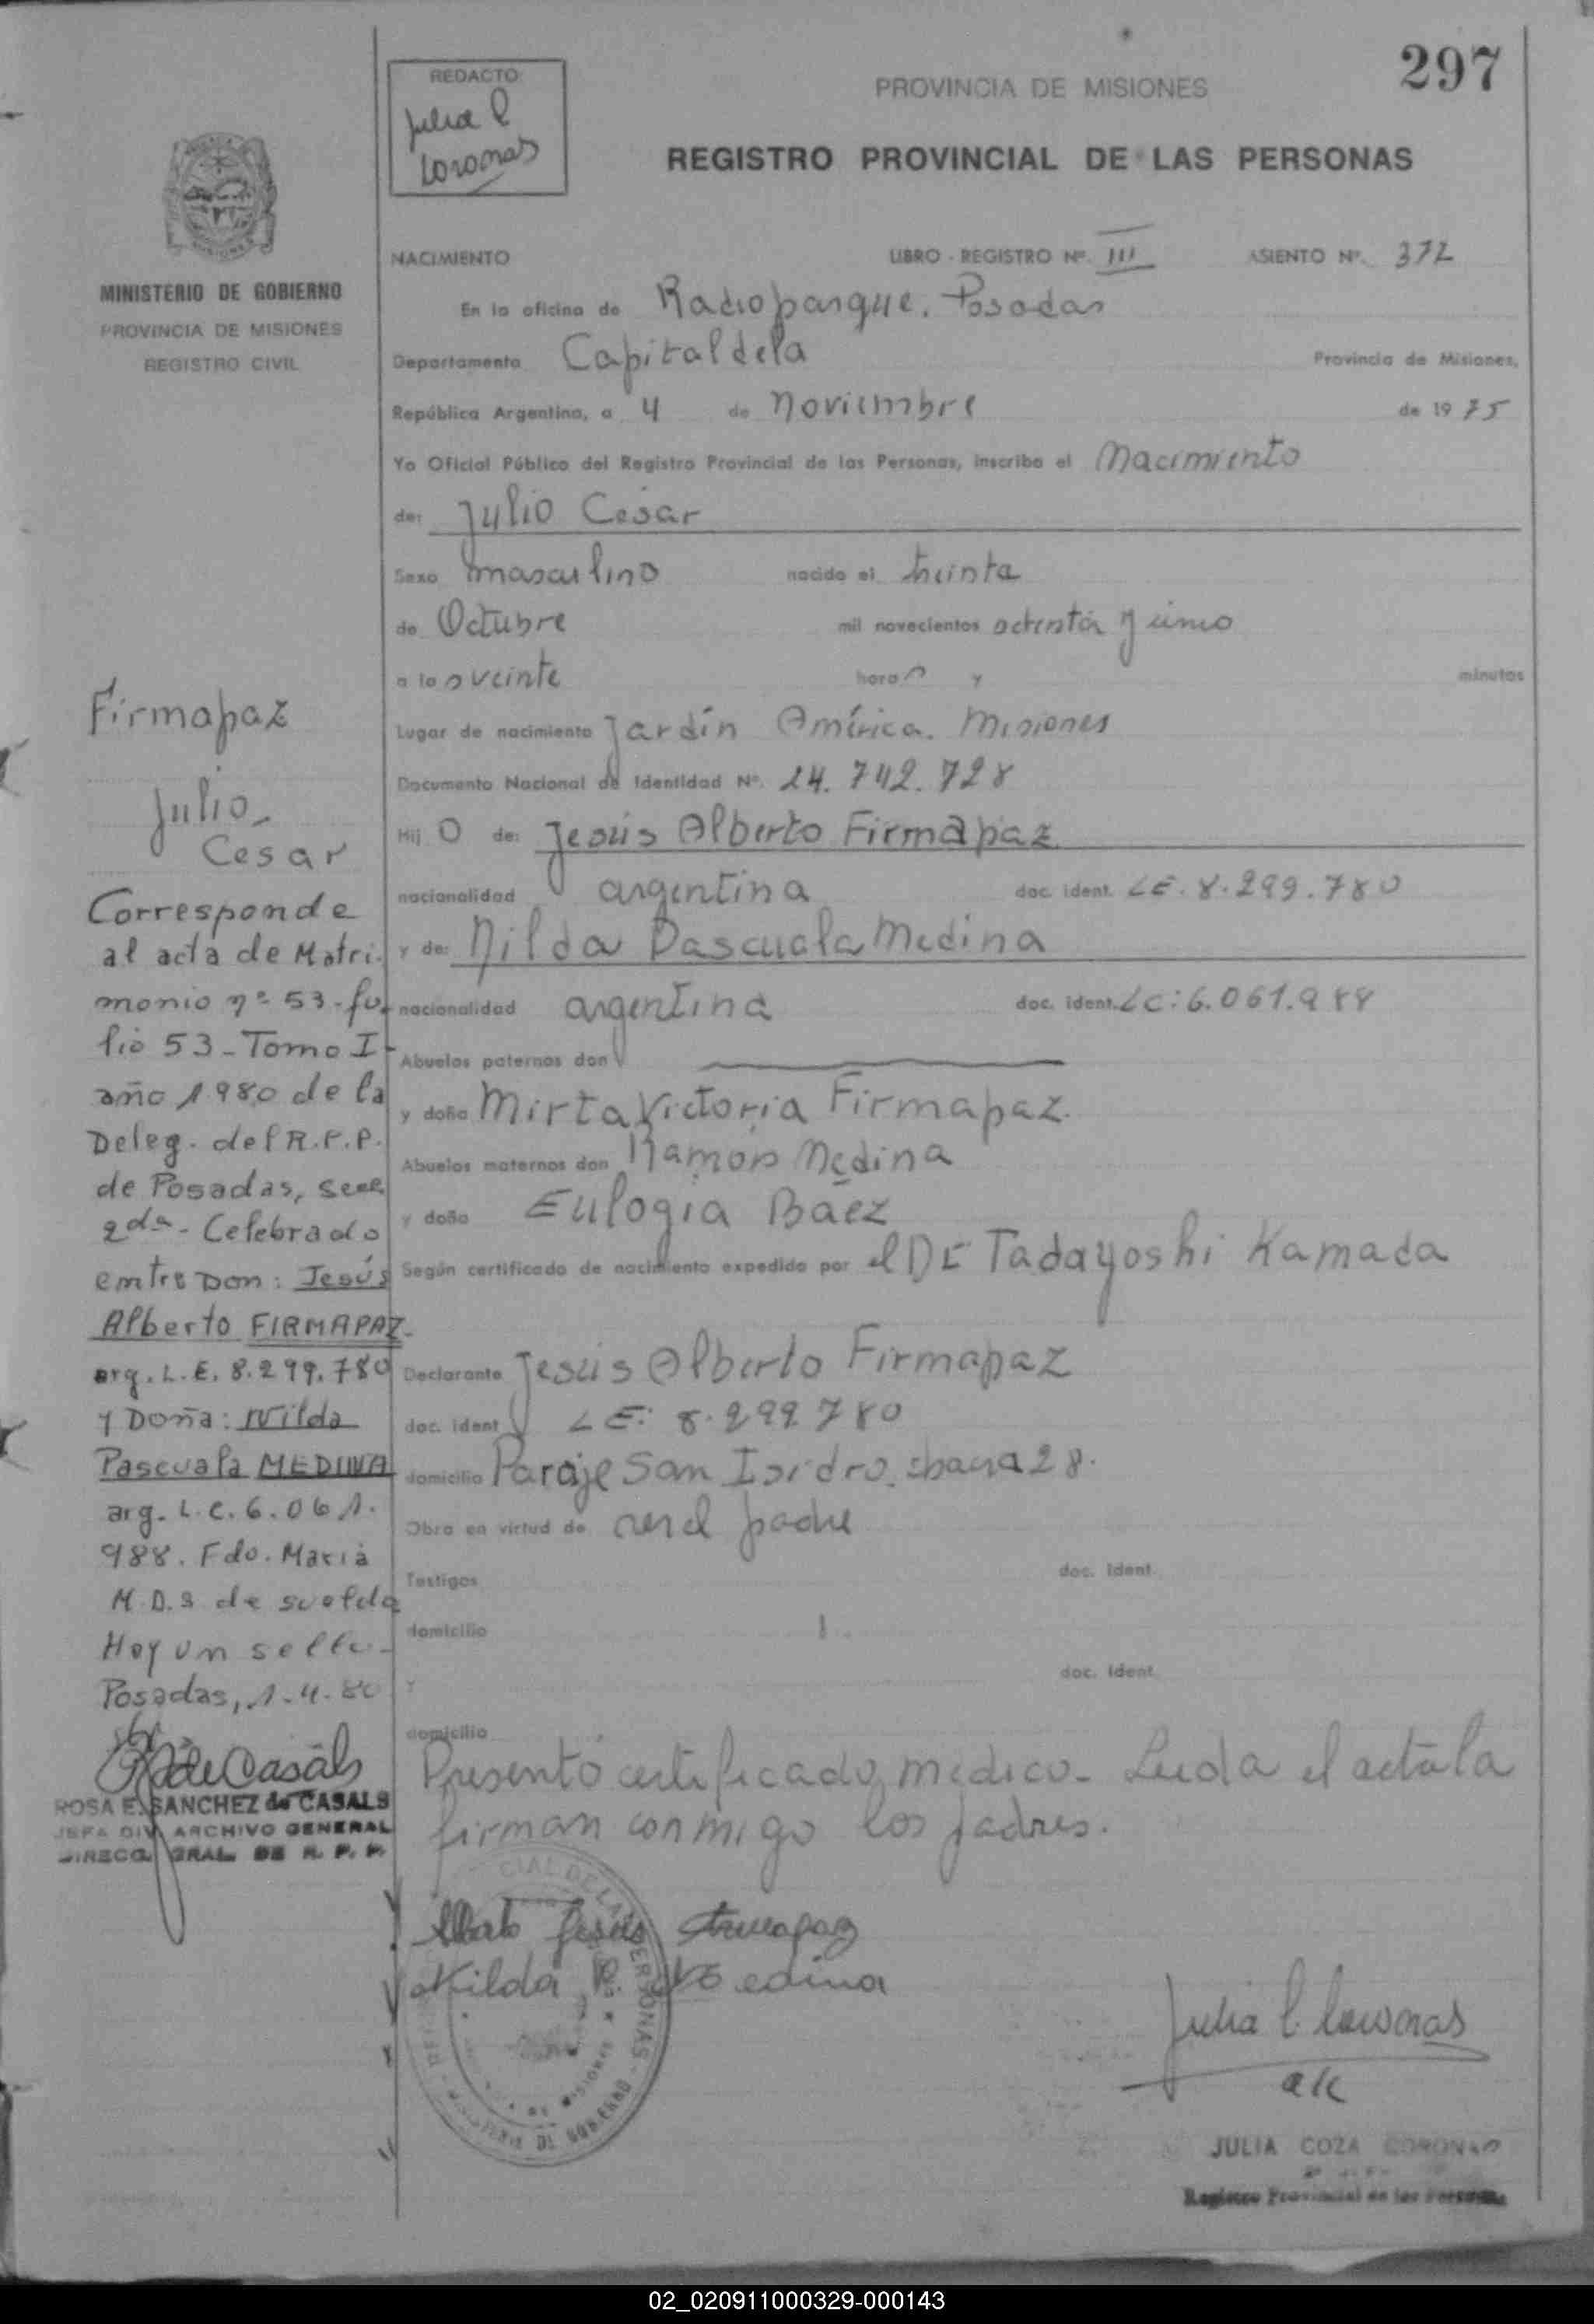 297
REDACTO
Julia C
Coronas
PROVINCIA DE MISIONES
REGISTRO PROVINCIAL DE LAS PERSONAS
MINISTERIO DE GOBIERNO
PROVINCIA DE MISIONES
REGISTRO CIVIL
NACIMIENTO LIBRO - REGISTRO Nº. III ASIENTO Nº. 372
En la oficina de Radioparque. Posadas
Departamento Capital dela Provincia de Misiones,
República Argentina, a 4 de noviembre de 1975
Yo Oficial Público del Registro Provincial de las Personas, inscribo el Nacimiento
de: Julio Cesar
Sexo masculino nacido el treinta
de Octubre mil novecientos setenta y cinco
a las veinte horas y minutos
Lugar de nacimiento Jardín América. Misiones
Documento Nacional de Identidad Nº. 24.742.728
Hij O de: Jesús Alberto Firmapaz
nacionalidad argentina doc. ident. LE. 8.299.780
y de: Nilda Pascuala Medina
nacionalidad argentina doc. ident. LC: 6.061.988
Abuelos paternos don
y doña Mirta Victoria Firmapaz.
Abuelos maternos don Ramón Medina
y doña Eulogia Báez
Según certificado de nacimiento expedido por el Dr Tadayoshi Kamada
Declarante Jesús Alberto Firmapaz
doc. ident LE: 8.299780
domicilio Paraje San Isidro. chacra 28.
Obra en virtud de ser el padre
Testigos doc. ident
domicilio
y doc. ident
domicilio
Presentó certificado medico. Leida el acta la
firman conmigo los padres.
Firmapaz
Julio
Cesar
Corresponde
al acta de Matri-
monio nº 53-fo-
lio 53-Tomo I-
año 1980 de la
Deleg. del R.P.P.
de Posadas, secc
2da- Celebrado
entre Don: Jesús
Alberto FIRMAPAZ-
arg. L.E. 8.299.780
y Doña: Nilda
Pascuala MEDINA
arg. L.C. 6.061.
988. Fdo. María
M.D.S de
Hay un sello-
Posadas, 1-4-80
R S de Casals
ROSA E. SANCHEZ de CASALS
JEFA DIV. ARCHIVO GENERAL
DIRECC. GRAL. DE R. P. P.
Alberto Jesús Firmapaz
Nilda P. Medina
Julia C. Coronas
a/c
JULIA COZA CORONAS
Registro Provincial de las Personas
02_020911000329-000143